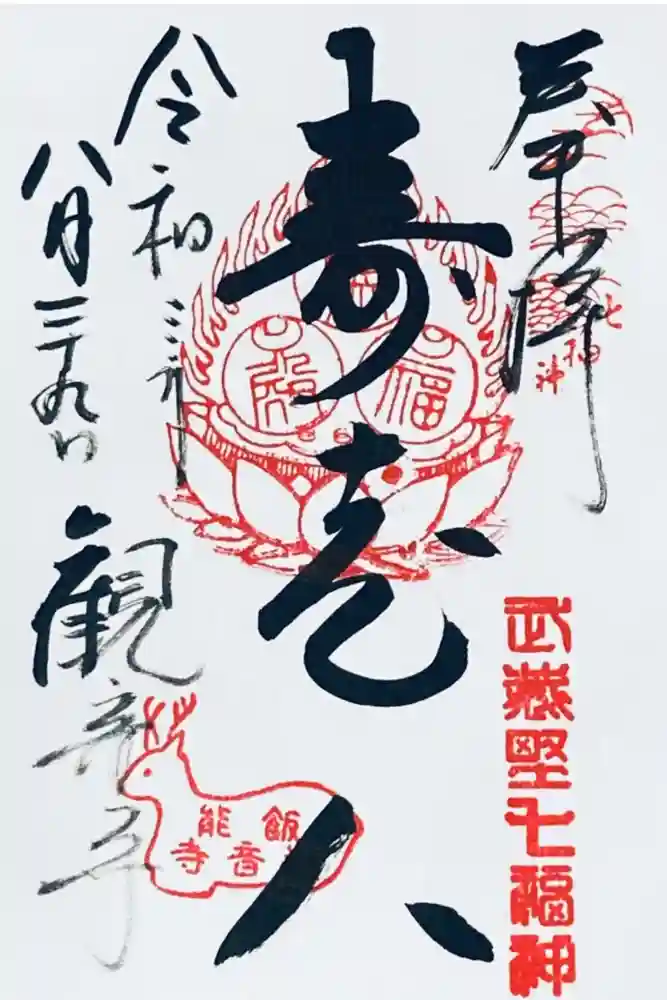 奉拝
七福神
武蔵野七福神
寿老人
福
令和三年
八月二十九日
観音寺
飯能
音寺